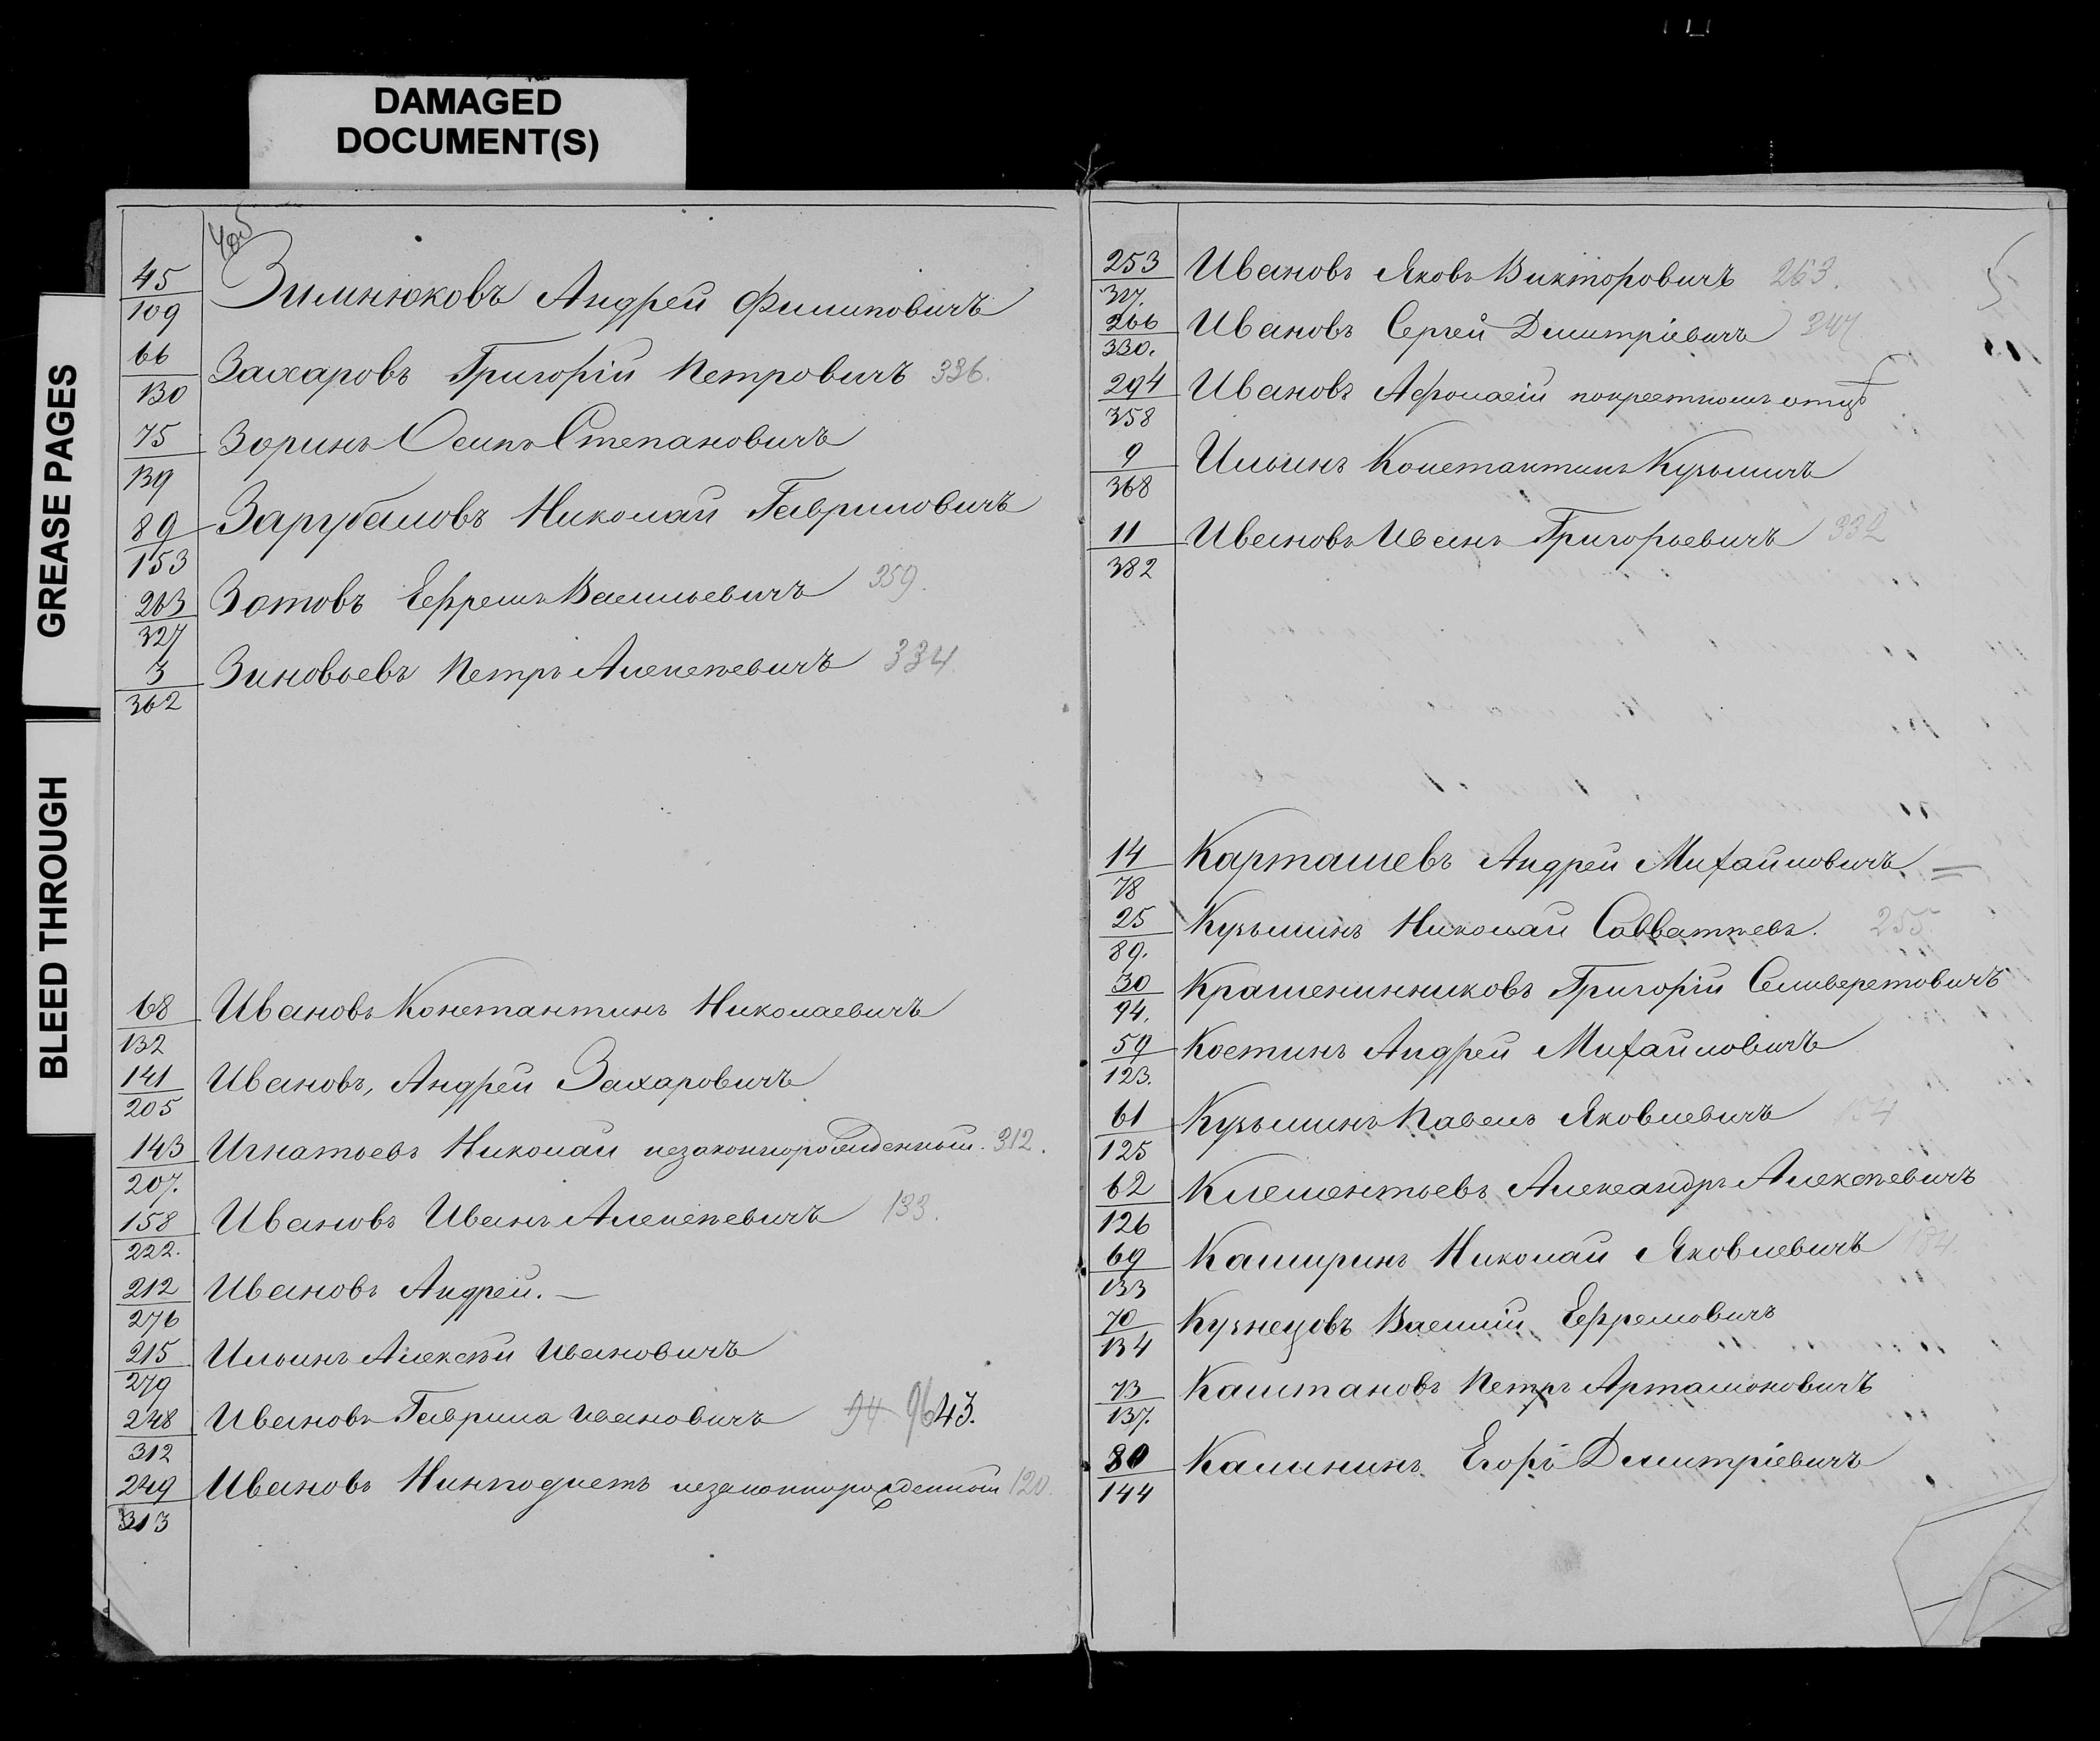 DAMAGED
DOCUMENT(S)
GREASE PAGES
BLEED THROUGH
45/109 Зимнюковъ Андрей Филиповичъ
66/130 Захаровъ Григорій Петровичъ 336.
75/139 Зоринъ Осипъ Степановичъ
89/153 Зарубаловъ Николай Гавриловичъ
263/327 Зотовъ Ефремъ Васильевичъ 359.
3/362 Зиновьевъ Петръ Алексѣевичъ 334
68/132 Ивановъ Константинъ Николаевичъ
141/205 Ивановъ, Андрей Захаровичъ
143/207. Игнатьевъ Николай незаконнорожденный. 312.
158/222. Ивановъ Иванъ Алексѣевичъ 133.
212/276 Ивановъ Андрей. —
215/279 Ильинъ Алексѣй Ивановичъ
248/312 Ивановъ Гаврила Ивановичъ 94 96 43.
249/313 Ивановъ Нинподистъ незаконнорожденный 120.
253/317. Ивановъ Яковъ Викторовичъ 263.
266/330. Ивановъ Сергей Дмитріевичъ 347
294/358 Ивановъ Афонасій покрестномъ отцѣ
9/368 Ильинъ Константинъ Кузьмичъ
11/382 Ивановъ Иванъ Григорьевичъ 332
14/78 Карташевъ Андрей Михайловичъ =
25/89. Кузьминъ Николай Савватѣевъ. 255
30/94. Крашенинниковъ Григорій Селиверстовичъ
59/123. Костинъ Андрей Михайловичъ
61/125 Кузьминъ Павелъ Яковлевичъ 154
62/126 Клементьевъ Александръ Алексѣевичъ
69/133 Каширинъ Николай Яковлевичъ 184.
70/134 Кузнецовъ Василій Ефремовичъ
73/137. Каштановъ Петръ Артамоновичъ
80/144 Калининъ Егоръ Дмитріевичъ